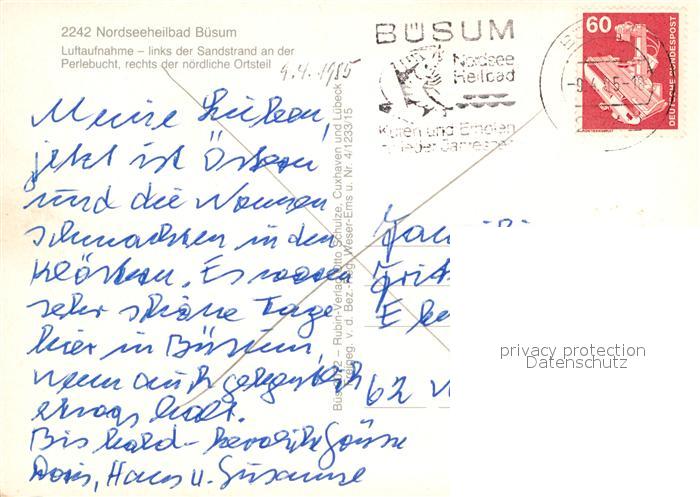 2242 Nordseeheilbad Büsum
Luftaufnahme – links der Sandstrand an der
Perlebucht, rechts der nördliche Ortsteil
9.4.1985
BÜSUM
Nordsee
Heilbad
Kuren und Erholen
zu jeder Jahreszeit
60
DEUTSCHE BUNDESPOST
Meine Lieben,
jetzt ist Ostern
und die Nonnen
schmachten in den
Klöstern. Es waren
sehr schöne Tage
hier in Büsum,
wenn auch gelegentlich
etwas kalt.
Bis bald – herzliche Grüsse
Doris, Hans u. Susanne
Rubin-Verlag Otto Schulze, Cuxhaven und Lübeck
Freigeg. v. d. Bez.-Reg. Weser-Ems u. Nr. 4/1233/15
Fritz
62 W
privacy protection
Datenschutz